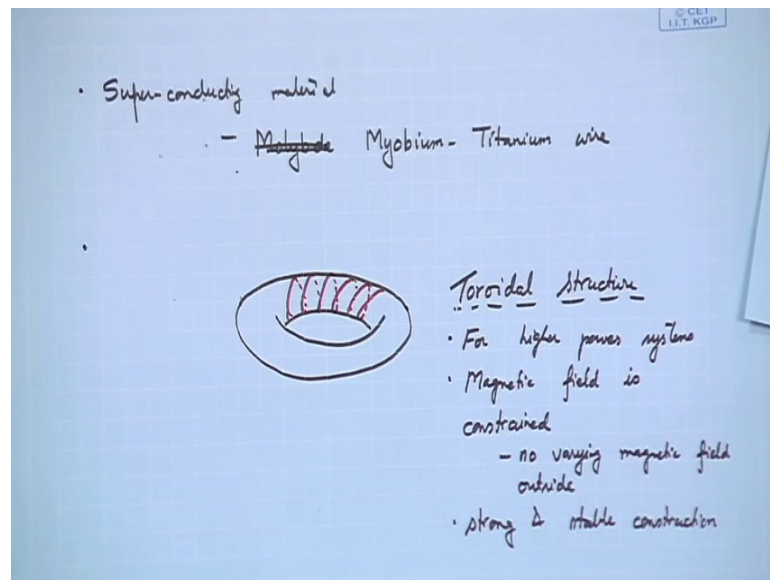 © CET
I.I.T. KGP
• Super-conducting material
- Molybde Myobium - Titanium wire
•
Toroidal Structure
• For higher power systems
• Magnetic field is
constrained
- no varying magnetic field
outside
• strong & stable construction